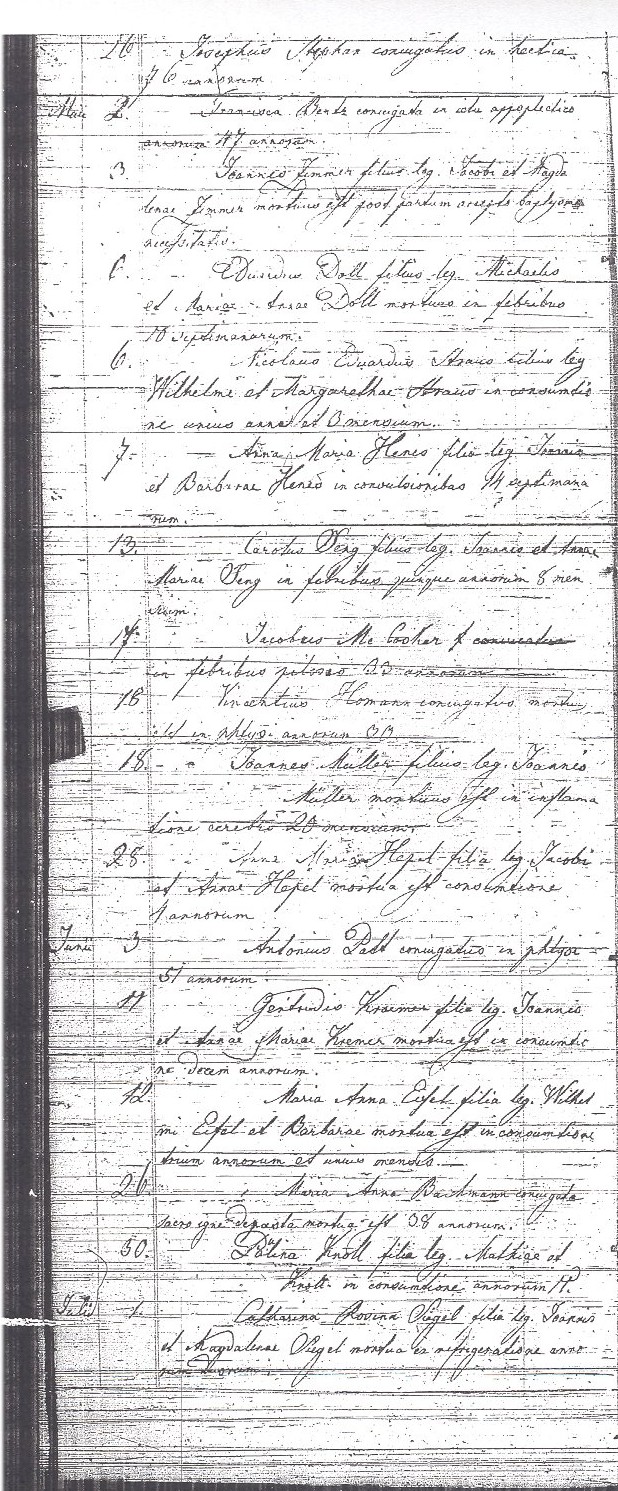 26 Josephus Stephan coniugatus in hectica
76 annorum
Maii 2. Francisca Bentz coniugata in ictu appoplectico
annorum 47 annorum.
3 Joannes Zimmer filius leg. Jacobi et Magda
lenae Zimmer mortuus est post partum accepto baptysmo
necessitatis.
6. Eduardus Doll filius leg. Michaelis
et Mariae Annae Doll mortuus in febribus
10 septimanarum.
6. Nicolaus Eduardus Straus filius leg
Wilhelmi et Margarethae Straus in consumtio
ne unius anni et 3 mensium.
7. Anna Maria Henes filia leg Joannis
et Barbarae Henes in convulsionibus 14 septimana
rum.
13. Carolus Seng filius leg. Joannis et Annae
Mariae Seng in febribus quinque annorum 8 men
sium.
17. Jacobus Mc Cosker coniugatus
in febribus 33 annorum
18 Vincentius Homann coniugatus mortuus
est in phtysi annorum 33
18. Joannes Müller filius leg. Joannis
Müller mortuus est in inflama
tione cerebri 20 mensium.
28 Anna Maria Hepel filia leg. Jacobi
et Annae Hepel mortua est consumtione
4 annorum
Junii 3 Antonius Patt coniugatus in phtysi
51 annorum.
11 Gertrudis Kraemer filia leg. Joannis
et Annae Mariae Kremer mortua est in consumtio
ne decem annorum.
12 Maria Anna Eifel filia leg. Wilhel
mi Eifel et Barbarae mortua est in consumtione
trium annorum et unius mensis
26. Maria Anna Bachmann coniugata
sacro igne depasta mortua est 38 annorum.
30. Paulina Knoll filia leg. Mathiae et
Knoll in consumtione annorum 17.
Julii 1. Catharina Rosina Siegel filia leg. Joannis
et Magdalenae Siegel mortua ex refrigeratione anno
rum duorum.